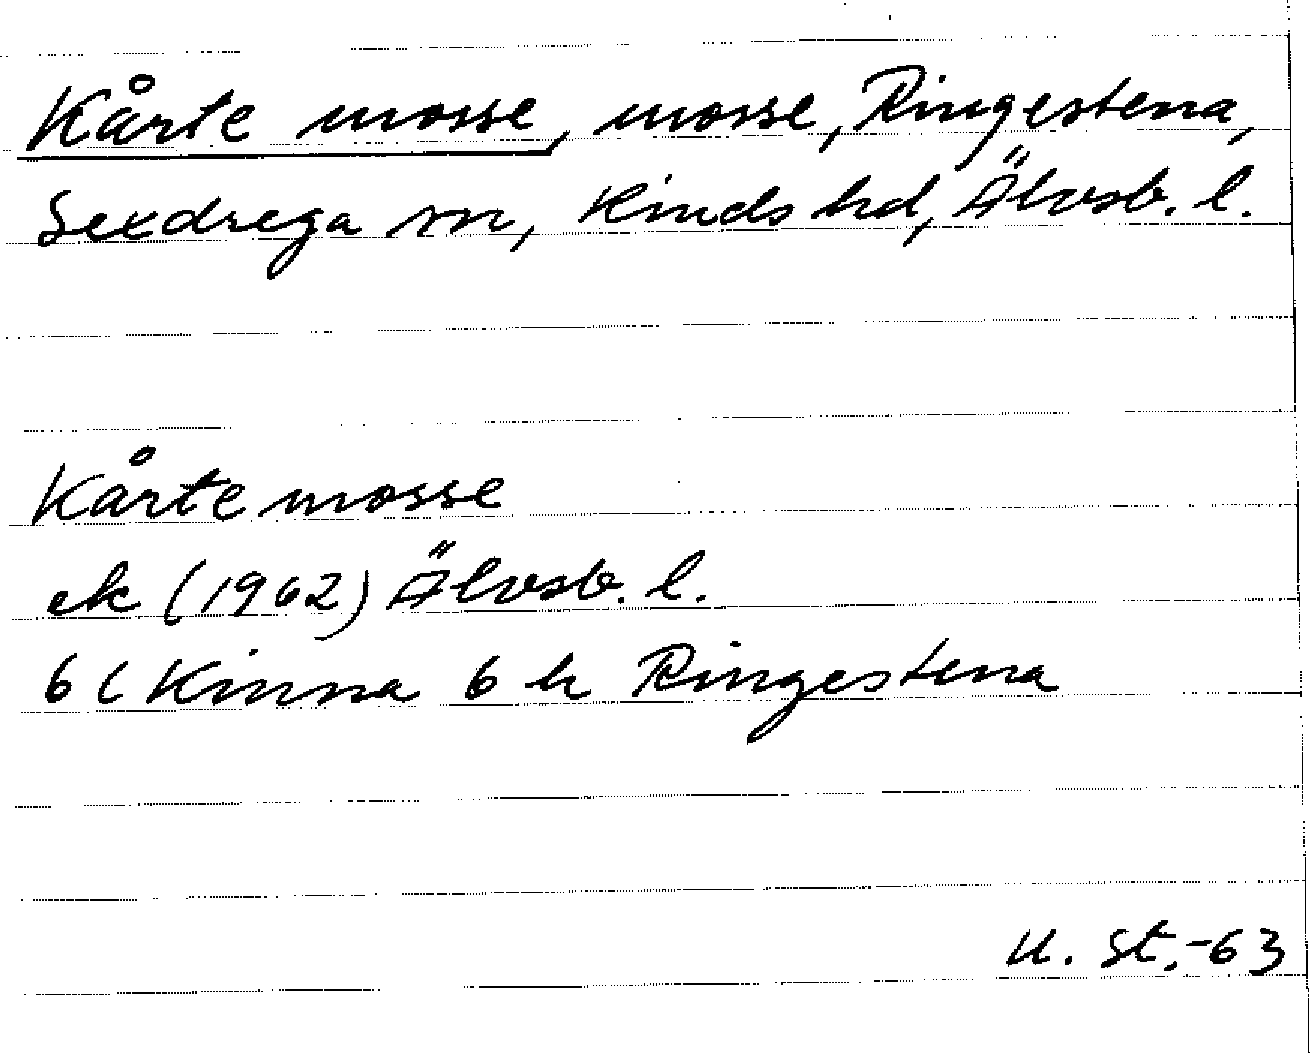 Kårte mosse, mosse, Ringestena,
Sexdrega sn, Kinds hd, Älvsb. l.
Kårte mosse
ek (1962) Älvsb. l.
6C Kinna 6 h Ringestena
U. St. -63